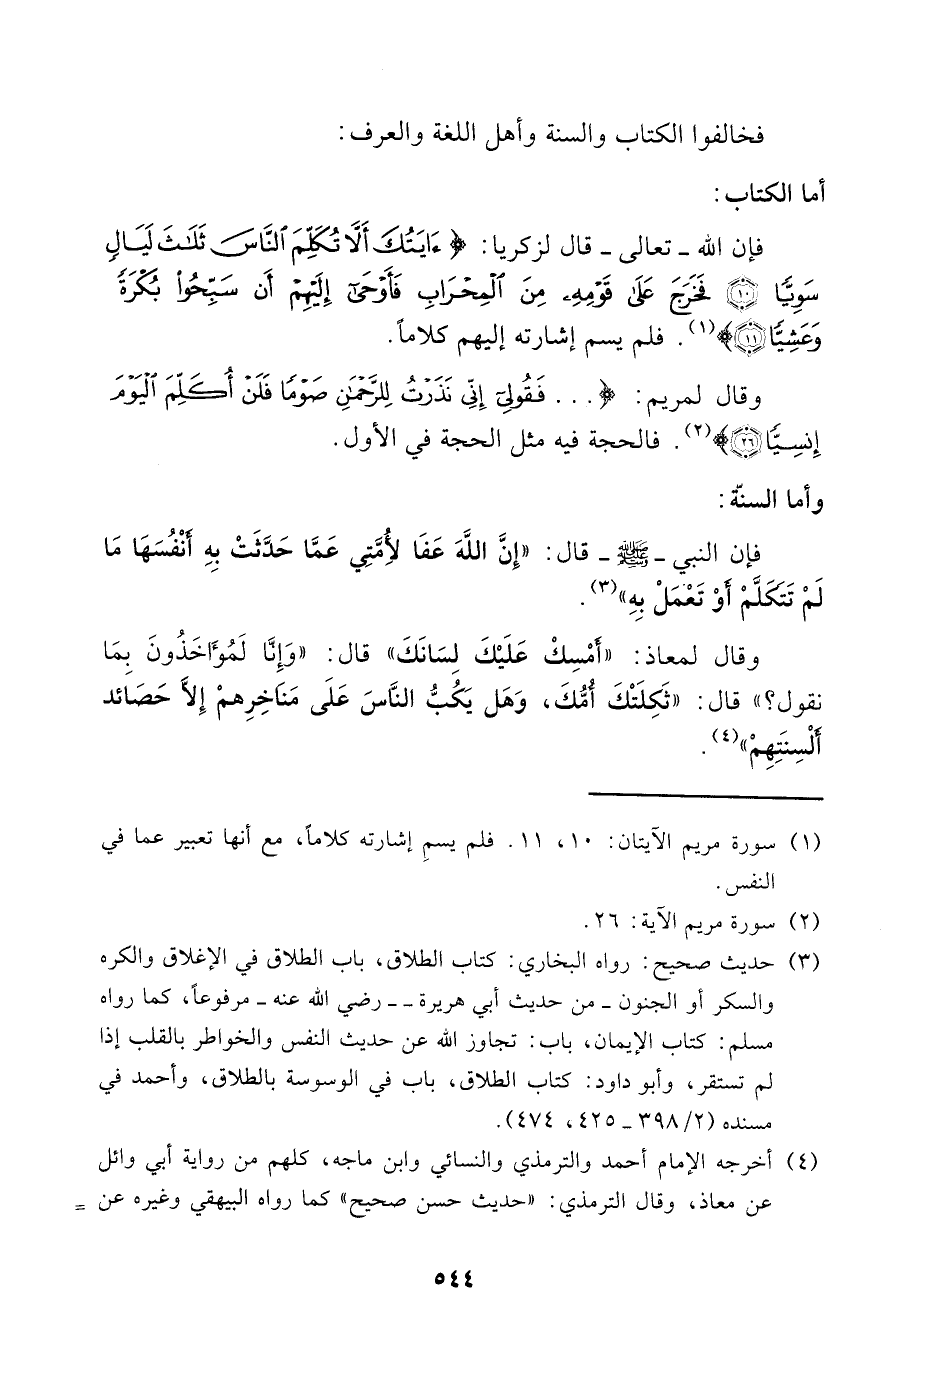 فخالفوا الكتاب والسنة وأهل اللغة والعرف:
أما الكتاب:
فإن الله ـ تعالى ـ قال لزكريا: ﴿ءَايَتُكَ أَلَّا تُكَلِّمَ ٱلنَّاسَ ثَلَٰثَ لَيَالٍ
سَوِيًّا ۝١٠ فَخَرَجَ عَلَىٰ قَوْمِهِۦ مِنَ ٱلْمِحْرَابِ فَأَوْحَىٰٓ إِلَيْهِمْ أَن سَبِّحُوا۟ بُكْرَةً
وَعَشِيًّا ۝١١﴾(١). فلم يسم إشارته إليهم كلاماً.
وقال لمريم: ﴿... فَقُولِىٓ إِنِّى نَذَرْتُ لِلرَّحْمَٰنِ صَوْمًا فَلَنْ أُكَلِّمَ ٱلْيَوْمَ
إِنسِيًّا ۝٢٦﴾(٢). فالحجة فيه مثل الحجة في الأول.
وأما السنّة:
فإن النبي ـ ﷺ ـ قال: «إِنَّ اللَّهَ عَفَا لأُمَّتِي عَمَّا حَدَّثَتْ بِهِ أَنْفُسَهَا مَا
لَمْ تَتَكَلَّمْ أَوْ تَعْمَلْ بِهِ»(٣).
وقال لمعاذ: «أَمْسِكْ عَلَيْكَ لِسَانَكَ» قال: «وَإِنَّا لَمُؤَاخَذُونَ بِمَا
نقول؟» قال: «ثَكِلَتْكَ أُمُّكَ، وَهَل يَكُبُّ النَّاسَ عَلَى مَنَاخِرِهِمْ إِلاَّ حَصَائد
أَلْسِنَتِهِمْ»(٤).
(١) سورة مريم الآيتان: ١٠، ١١. فلم يسمِ إشارته كلاماً، مع أنها تعبير عما في
النفس.
(٢) سورة مريم الآية: ٢٦.
(٣) حديث صحيح: رواه البخاري: كتاب الطلاق، باب الطلاق في الإغلاق والكره
والسكر أو الجنون ـ من حديث أبي هريرة ـ ـ رضي الله عنه ـ مرفوعاً، كما رواه
مسلم: كتاب الإيمان، باب: تجاوز الله عن حديث النفس والخواطر بالقلب إذا
لم تستقر، وأبو داود: كتاب الطلاق، باب في الوسوسة بالطلاق، وأحمد في
مسنده (٢/٣٩٨ ـ ٤٢٥، ٤٧٤).
(٤) أخرجه الإمام أحمد والترمذي والنسائي وابن ماجه، كلهم من رواية أبي وائل
عن معاذ، وقال الترمذي: «حديث حسن صحيح» كما رواه البيهقي وغيره عن =
٥٤٤